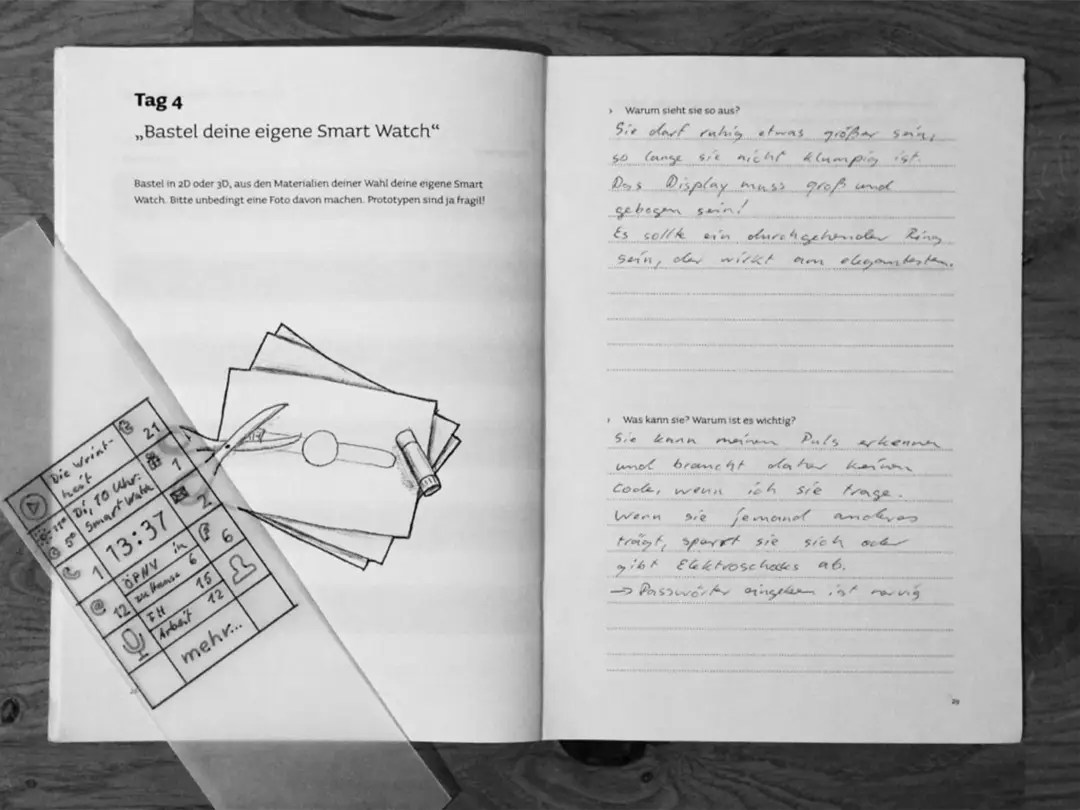 Tag 4
„Bastel deine eigene Smart Watch“
Bastel in 2D oder 3D, aus den Materialien deiner Wahl deine eigene Smart
Watch. Bitte unbedingt eine Foto davon machen. Prototypen sind ja fragil!
21
Di, 10 Uhr:
Smart Watch
1
5°
13:37
2
1
ÖPNV in
6
@ 12
zu Hause 6
FH 15
Arbeit 12
mehr...
› Warum sieht sie so aus?
Sie darf ruhig etwas größer sein,
so lange sie nicht klumpig ist.
Das Display muss groß und
gebogen sein!
Es sollte ein durchgehender Ring
sein, der wirkt am elegantesten.
› Was kann sie? Warum ist es wichtig?
Sie kann meinen Puls erkennen
und braucht daher keinen
Code, wenn ich sie trage.
Wenn sie jemand anderes
trägt, sperrt sie sich oder
gibt Elektroschocks ab.
→ Passwörter eingeben ist nervig
29